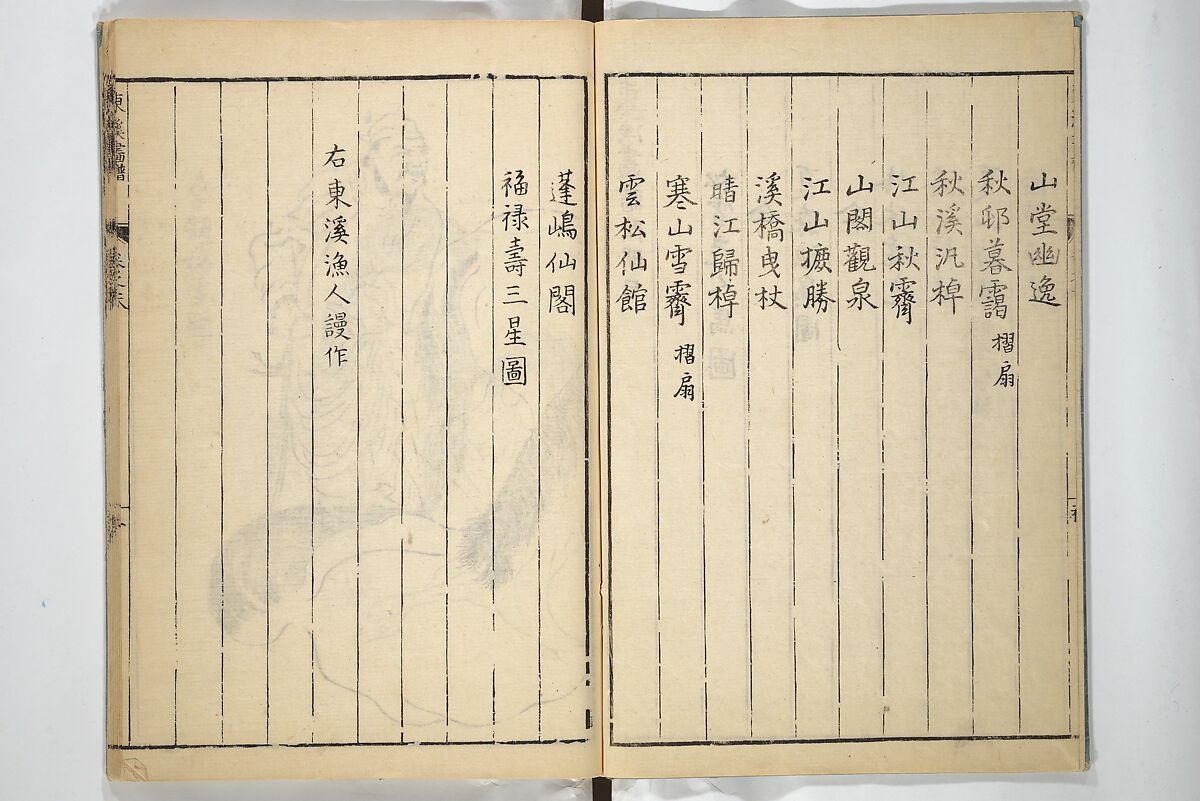 山堂幽逸
秋邨暮靄 摺扇
秋溪汎棹
江山秋霽
山閣觀泉
江山攄勝
溪橋曳杖
晴江歸棹
寒山雪霽 摺扇
雲松仙館
蓬嶋仙閣
福禄壽三星圖
右東溪漁人謾作
東溪畫譜